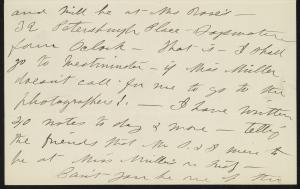 and will be at Mrs Rose's -
32 Petersburgh Place - Bayswater
four O'clock - That is - I shall
go to Westminster - if Miss Müller
doesn't call for me to go to the
photographers'! - I have written
30 notes to day & more -
the friends that Mr D. & I were to
be at Miss Müller's
Can't you be me